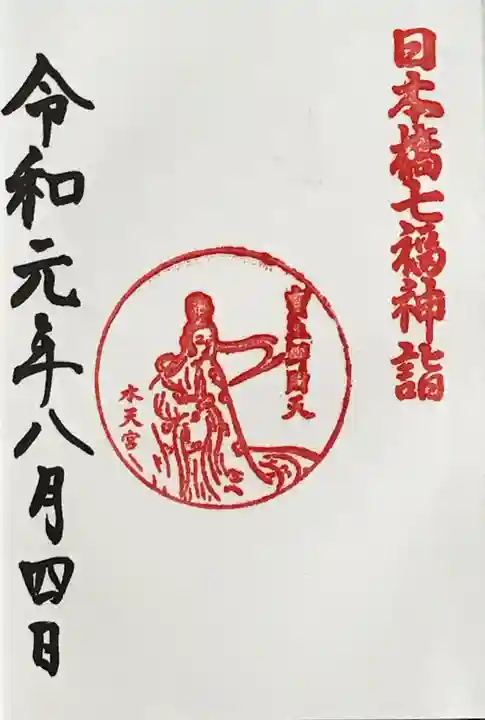 日本橋七福神詣
天
水天宮
令和元年八月四日